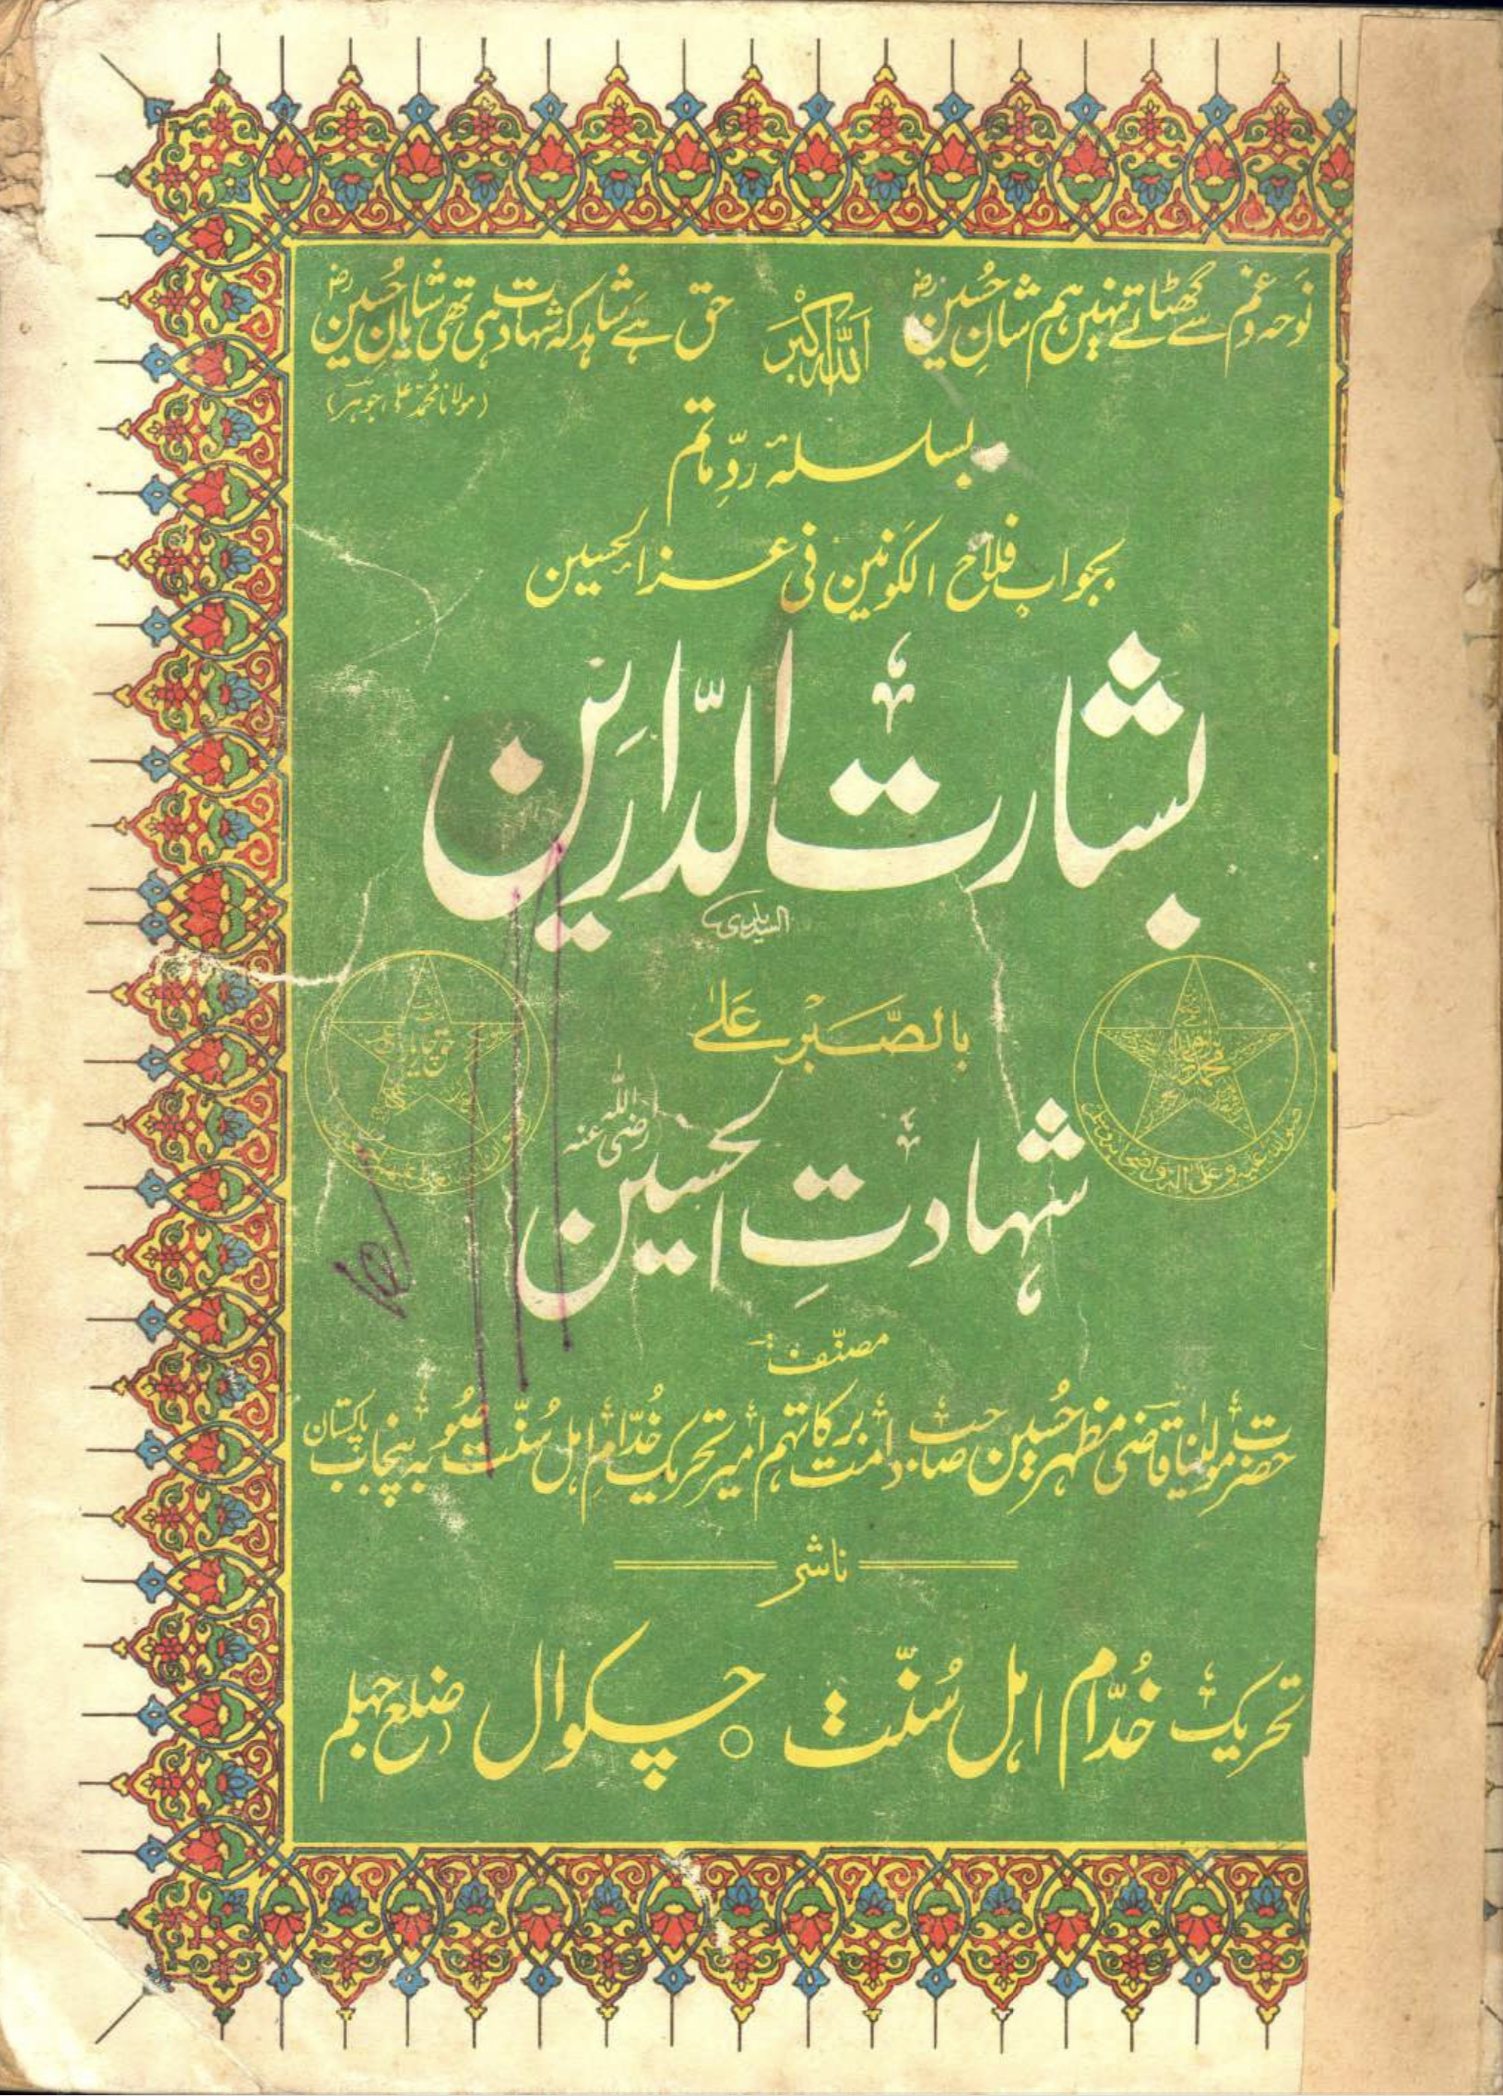 نوحہ و غم سے گھٹاتے نہیں ہم شانِ حُسینؓ اللہ اکبر حق ہے شاہد کہ شہادت ہی تھی شایانِ حُسینؓ
(مولانا محمد علی جوہرؔ)
بسلسلۂ ردِّ ماتم
بجواب فلاح الکونین فی عزاالحسین
بشارت الدّارین
بالصَّبْرِ عَلیٰ
شہادتِ الحسین رضی اللہ عنہ
مصنّف:
حضرت مولٰینا قاضی مظہر حُسین صاحب دامت برکاتہم امیر تحریک خُدّام اہل سُنّت صُوبہ پنجاب پاکستان
ناشر
تحریک خُدّام اہل سُنّت ○ چکوال ضلع جہلم